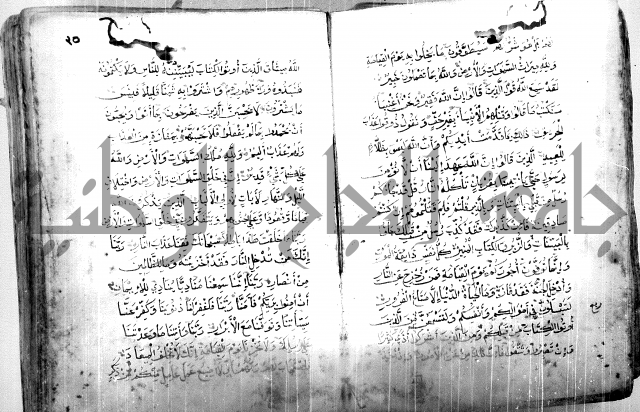 هو شر لهم سيطوقون ما بخلوا به يوم القيامة
ولله ميراث السموات والأرض والله بما تعملون خبير
لقد سمع الله قول الذين قالوا إن الله فقير ونحن أغنياء
سنكتب ما قالوا وقتلهم الأنبياء بغير حق ونقول ذوقوا عذاب
الحريق ذلك بما قدمت أيديكم وأن الله ليس بظلام
للعبيد الذين قالوا إن الله عهد إلينا ألا نؤمن
لرسول حتى يأتينا بقربان تأكله النار قل قد جاءكم
رسل من قبلي بالبينات وبالذي قلتم فلم قتلتموهم إن كنتم
صادقين فإن كذبوك فقد كذب رسل من قبلك جاؤا
بالبينات والزبر والكتاب المنير كل نفس ذائقة الموت
وإنما توفون أجوركم يوم القيامة فمن زحزح عن النار
وأدخل الجنة فقد فاز وما الحياة الدنيا إلا متاع الغرور
لتبلون في أموالكم وأنفسكم ولتسمعن من الذين
أوتوا الكتاب من قبلكم ومن الذين أشركوا أذى كثيرا
وإن تصبروا وتتقوا فإن ذلك من عزم الأمور
٢٥
الله ميثاق الذين أوتوا الكتاب لتبيننه للناس ولا تكتمونه
فنبذوه وراء ظهورهم واشتروا به ثمنا قليلا فبئس
ما يشترون لا تحسبن الذين يفرحون بما أتوا ويحبون
أن يحمدوا بما لم يفعلوا فلا تحسبنهم بمفازة من العذاب
ولهم عذاب أليم ولله ملك السموات والأرض والله
على كل شيء قدير إن في خلق السموات والأرض واختلاف
الليل والنهار لآيات لأولي الألباب الذين يذكرون الله
قياما وقعودا وعلى جنوبهم ويتفكرون في خلق السموات والأرض
ربنا ما خلقت هذا باطلا سبحانك فقنا عذاب النار ربنا
إنك من تدخل النار فقد أخزيته وما للظالمين
من أنصار ربنا إننا سمعنا مناديا ينادي للإيمان
أن آمنوا بربكم فآمنا ربنا فاغفر لنا ذنوبنا وكفر عنا
سيئاتنا وتوفنا مع الأبرار ربنا وآتنا ما وعدتنا
على رسلك ولا تخزنا يوم القيامة إنك لا تخلف الميعاد
جامعة النجاح الوطنية